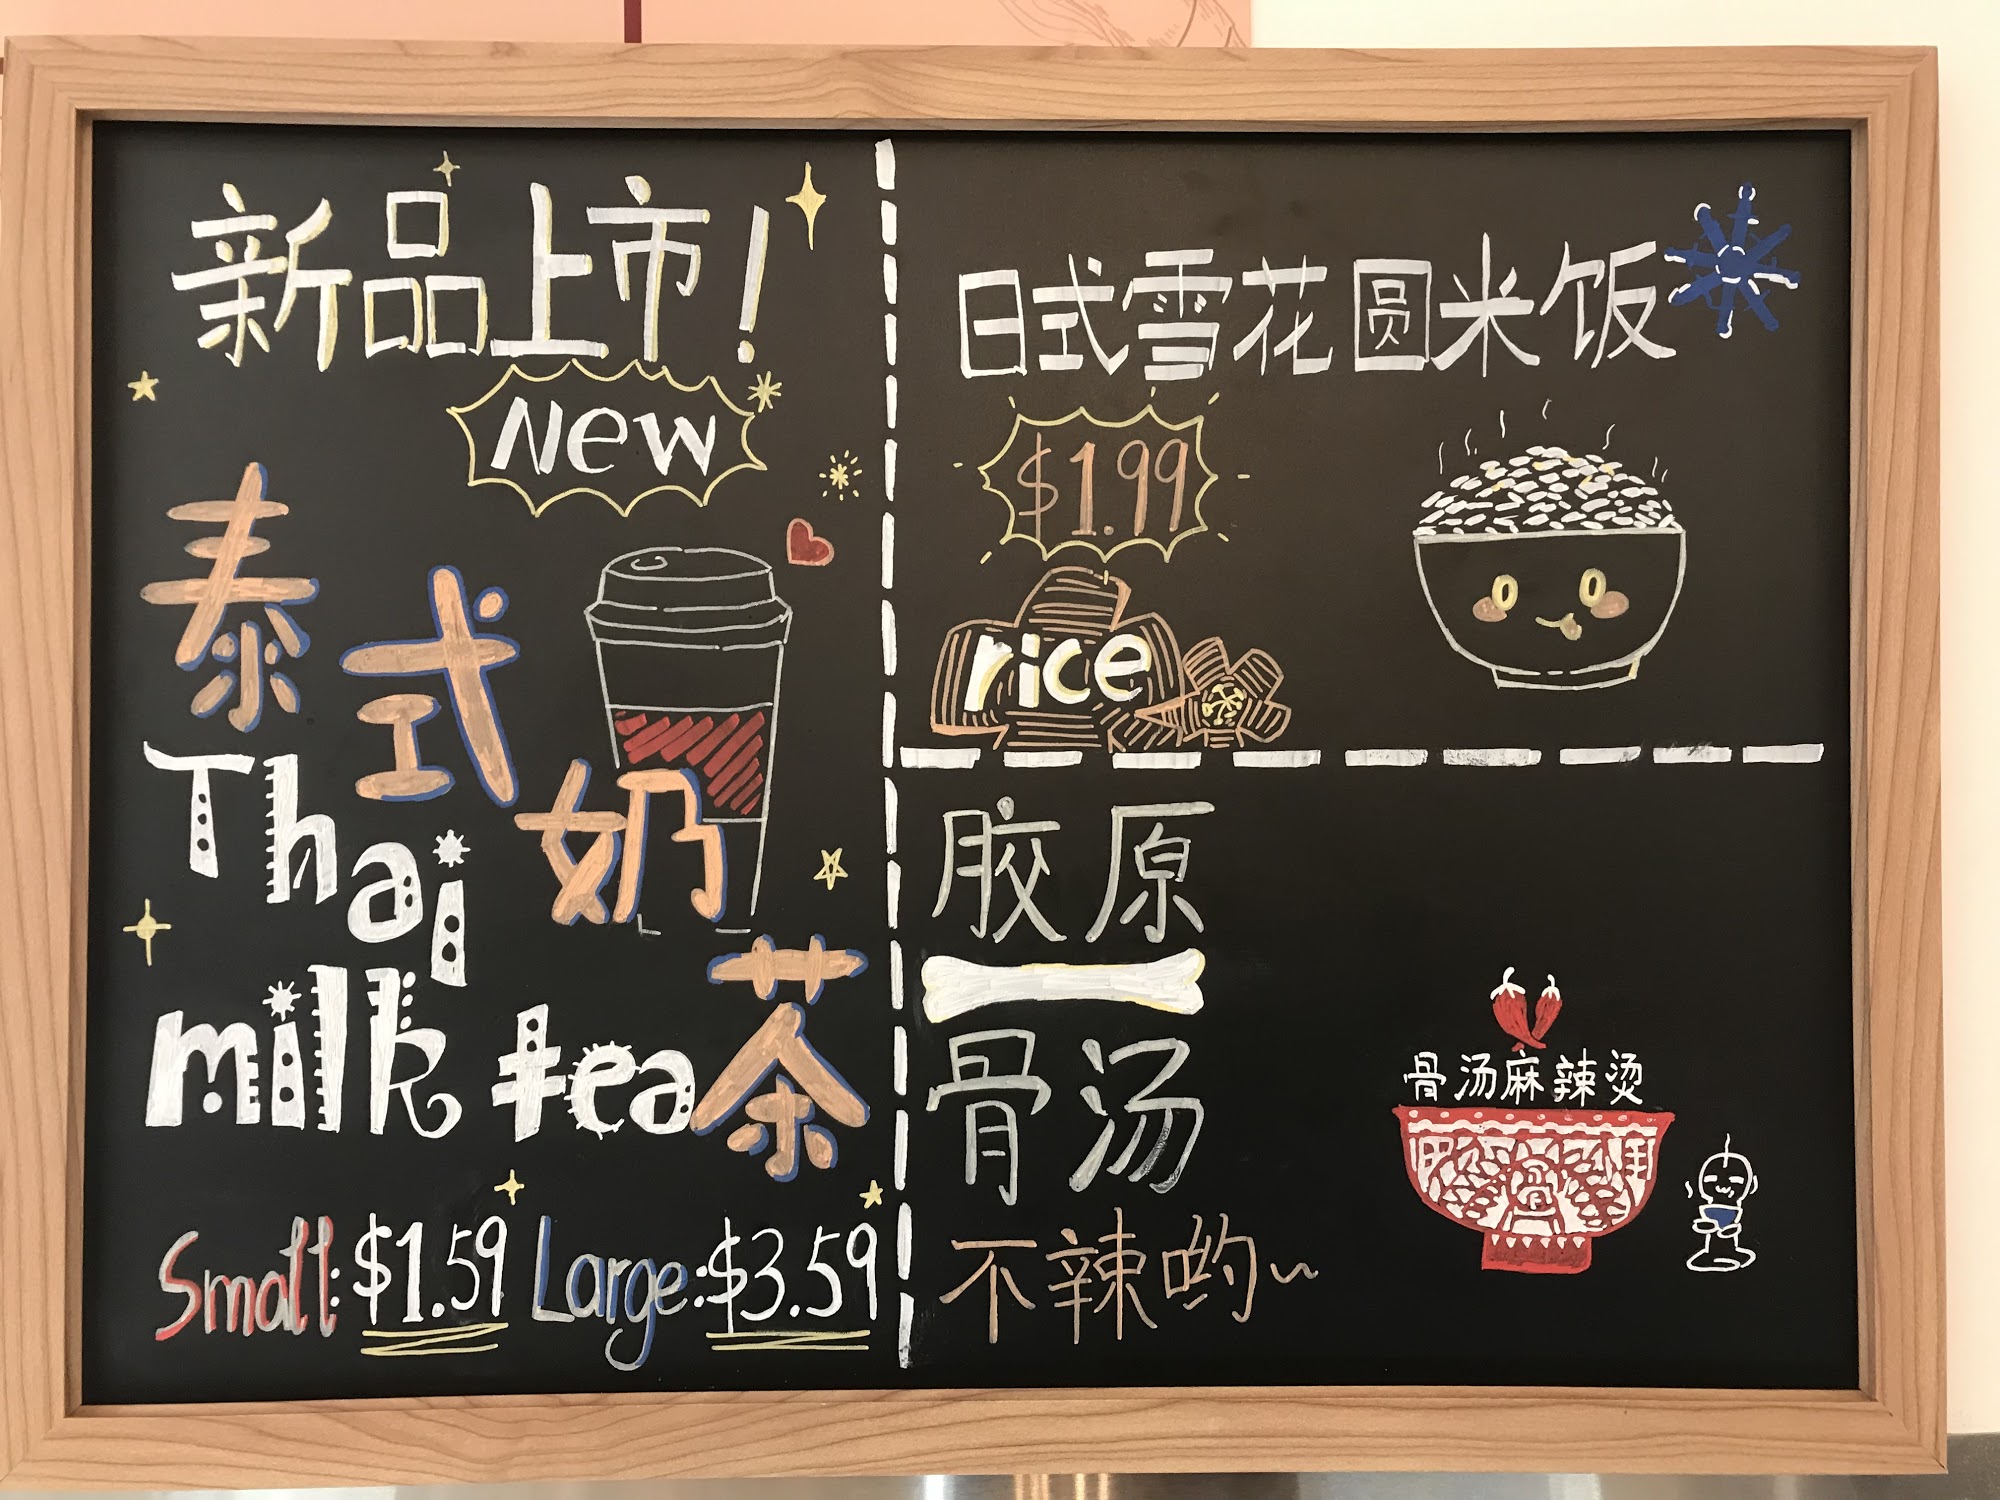 新品上市!
New
泰式奶茶
Thai
milk tea
Small: $1.59 Large: $3.59
日式雪花圆米饭
$1.99
rice
胶原
骨汤
不辣哟~
骨汤麻辣烫